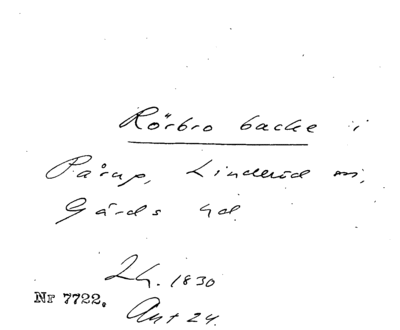 Rörbro backe i
Pårup, Linderöd sn,
Gärds hd.
Lh. 1830
Nr 7722. Ant 24.